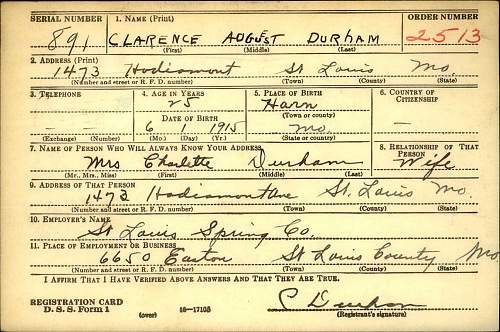 SERIAL NUMBER 1. NAME (Print) ORDER NUMBER
891 CLARENCE AUGUST DURHAM 2513
(First) (Middle) (Last)
2. ADDRESS (Print)
1473 Hodiamont St Louis Mo.
(Number and street or R. F. D. number) (Town) (County) (State)
3. TELEPHONE 4. AGE IN YEARS 5. PLACE OF BIRTH 6. COUNTRY OF CITIZENSHIP
25 Harn
(Town or county)
DATE OF BIRTH
— — 6 1 1915 Mo. —
(Exchange) (Number) (Mo.) (Day) (Yr.) (State or country)
7. NAME OF PERSON WHO WILL ALWAYS KNOW YOUR ADDRESS 8. RELATIONSHIP OF THAT PERSON
Mrs Charlotte Durham Wife
(Mr., Mrs., Miss) (First) (Middle) (Last)
9. ADDRESS OF THAT PERSON
1473 Hodiamont Ave St. Louis Mo.
(Number and street or R. F. D. number) (Town) (County) (State)
10. EMPLOYER'S NAME
St Louis Spring Co.
11. PLACE OF EMPLOYMENT OR BUSINESS
6650 Easton St Louis County Mo
(Number and street or R. F. D. number) (Town) (County) (State)
I AFFIRM THAT I HAVE VERIFIED ABOVE ANSWERS AND THAT THEY ARE TRUE.
REGISTRATION CARD C Durham
D. S. S. Form 1 (over) 16—17105 (Registrant's signature)